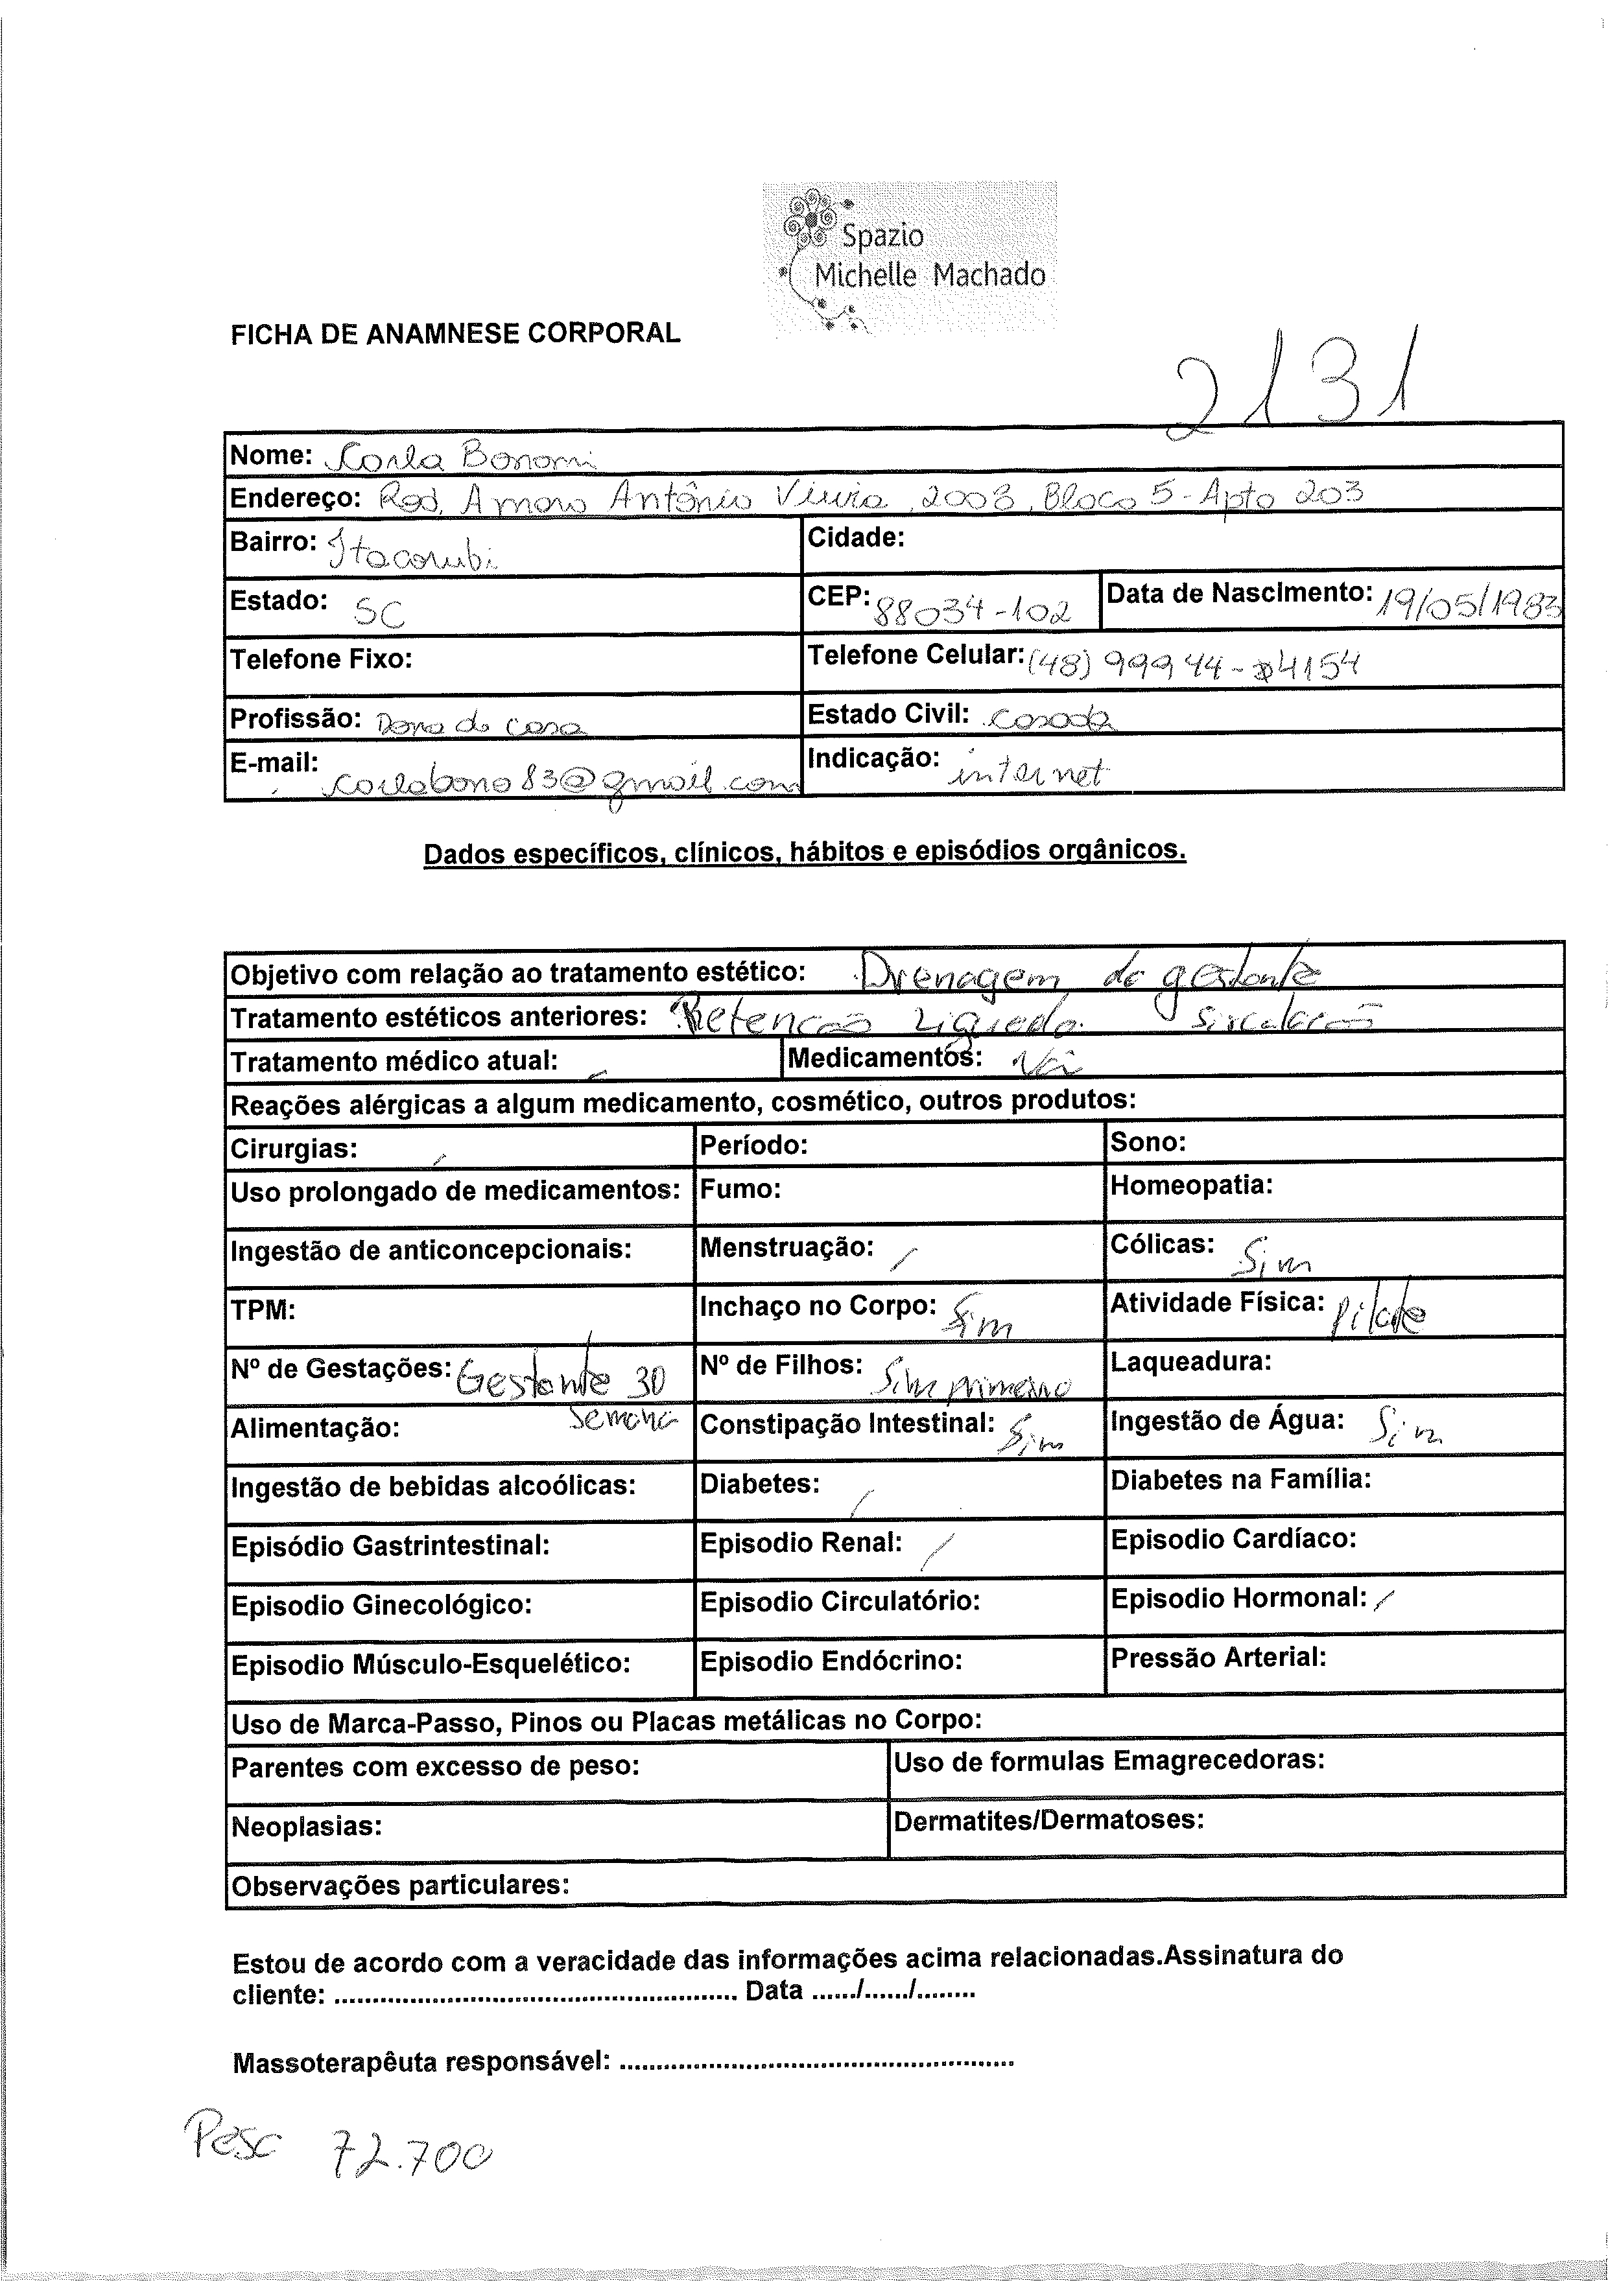 Spazio
Michelle Machado
FICHA DE ANAMNESE CORPORAL
2131
Nome: Carla Bonomi
Endereço: Rod. Amaro Antônio Vieira, 2008, Bloco 5 - Apto 203
Bairro: Itacorubi Cidade:
Estado: SC CEP: 88034-102 Data de Nascimento: 19/05/1983
Telefone Fixo: Telefone Celular: (48) 99944-4154
Profissão: Dona de casa Estado Civil: Casada
E-mail: carlabono83@gmail.com Indicação: internet
Dados específicos, clínicos, hábitos e episódios orgânicos.
Objetivo com relação ao tratamento estético: Drenagem de gestante
Tratamento estéticos anteriores: Retencão Liquedo. Sirculacão
Tratamento médico atual: Medicamentos:
Reações alérgicas a algum medicamento, cosmético, outros produtos:
Cirurgias: / Período: Sono:
Uso prolongado de medicamentos: Fumo: Homeopatia:
Ingestão de anticoncepcionais: Menstruação: / Cólicas: Sim
TPM: Inchaço no Corpo: Sim Atividade Física: pilate
Nº de Gestações: Gestante 30 Nº de Filhos: Sim primeiro Laqueadura:
semana
Alimentação: Constipação Intestinal: Sim Ingestão de Água: Sim
Ingestão de bebidas alcoólicas: Diabetes: / Diabetes na Família:
Episódio Gastrintestinal: Episodio Renal: / Episodio Cardíaco:
Episodio Ginecológico: Episodio Circulatório: Episodio Hormonal: /
Episodio Músculo-Esquelético: Episodio Endócrino: Pressão Arterial:
Uso de Marca-Passo, Pinos ou Placas metálicas no Corpo:
Parentes com excesso de peso: Uso de formulas Emagrecedoras:
Neoplasias: Dermatites/Dermatoses:
Observações particulares:
Estou de acordo com a veracidade das informações acima relacionadas.Assinatura do
cliente: ..................................................... Data ....../....../........
Massoterapêuta responsável: ....................................................
Peso 72.700